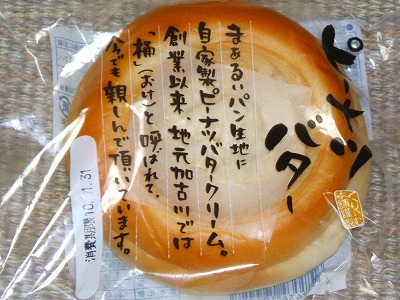 ピーナツ
バター
まあるいパン生地に
自家製ピーナツバタークリーム。
創業以来、地元加古川では
「桶」(おけ)と呼ばれて、
今でも親しんで頂いています。
消費期限10.1.31